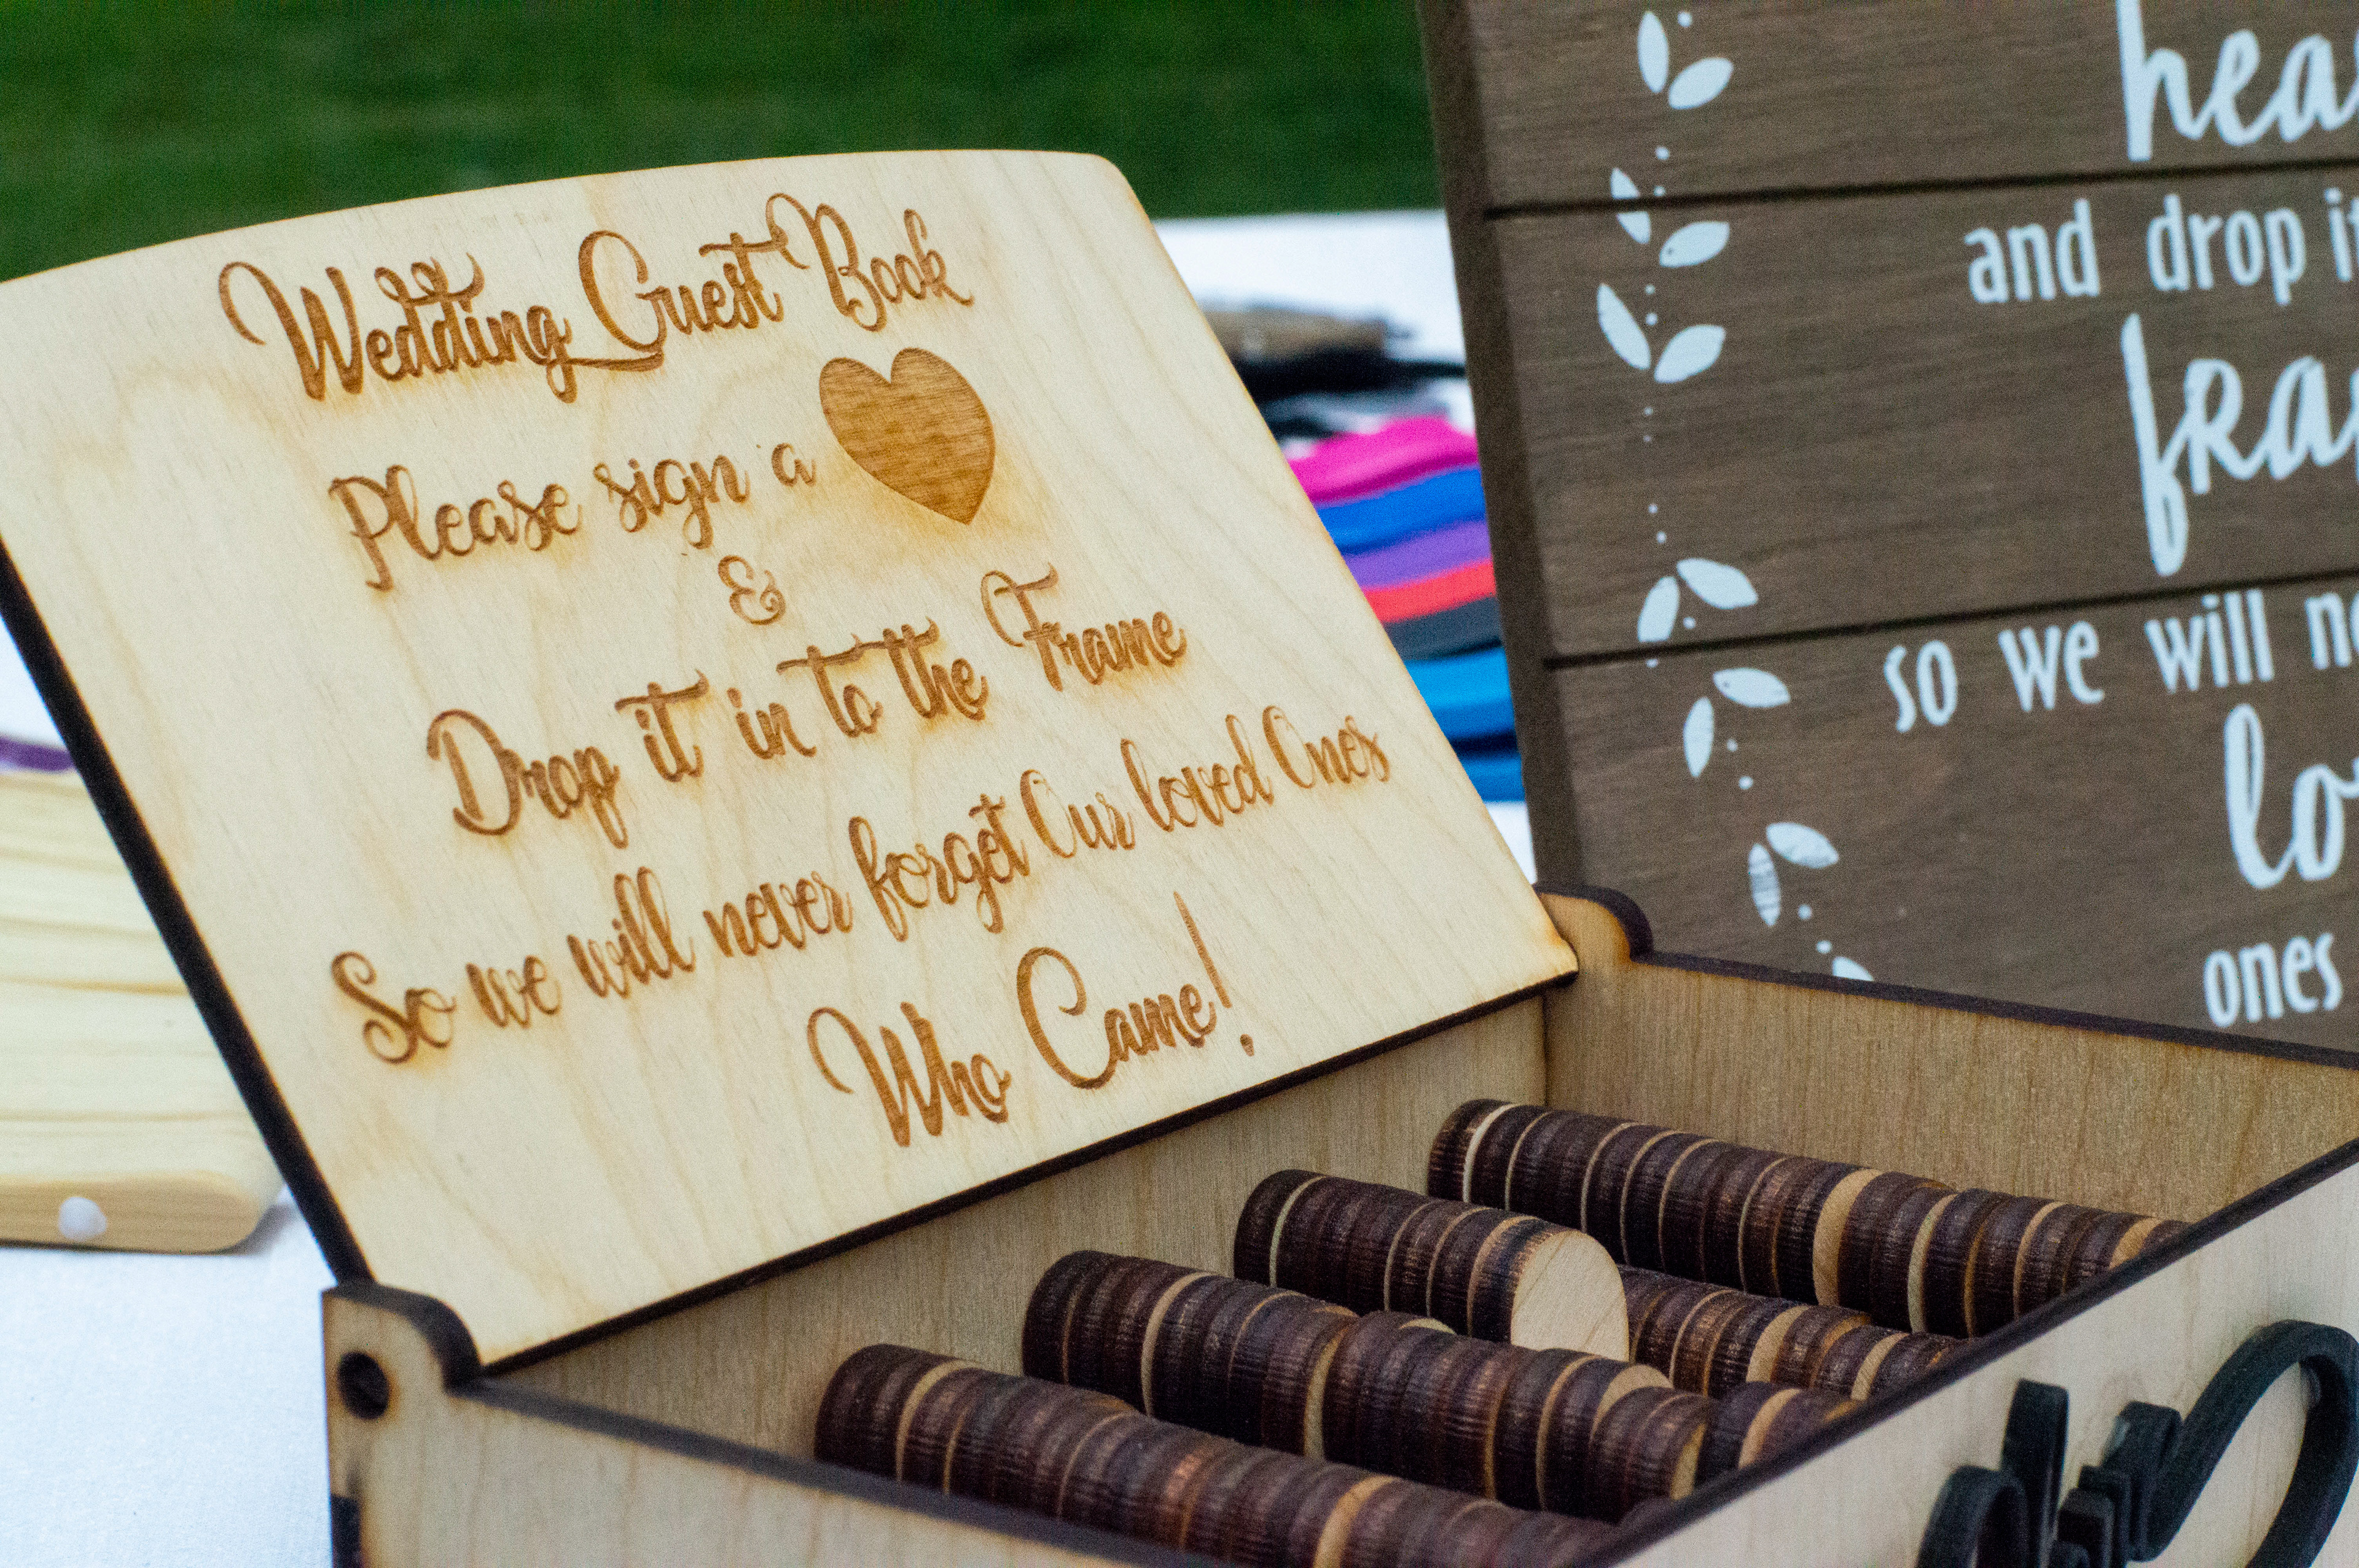 Wedding Guest Book
Please sign a
&
Drop it in to the Frame
So we will never forget Our loved Ones
Who Came!
and drop
so we will
ones